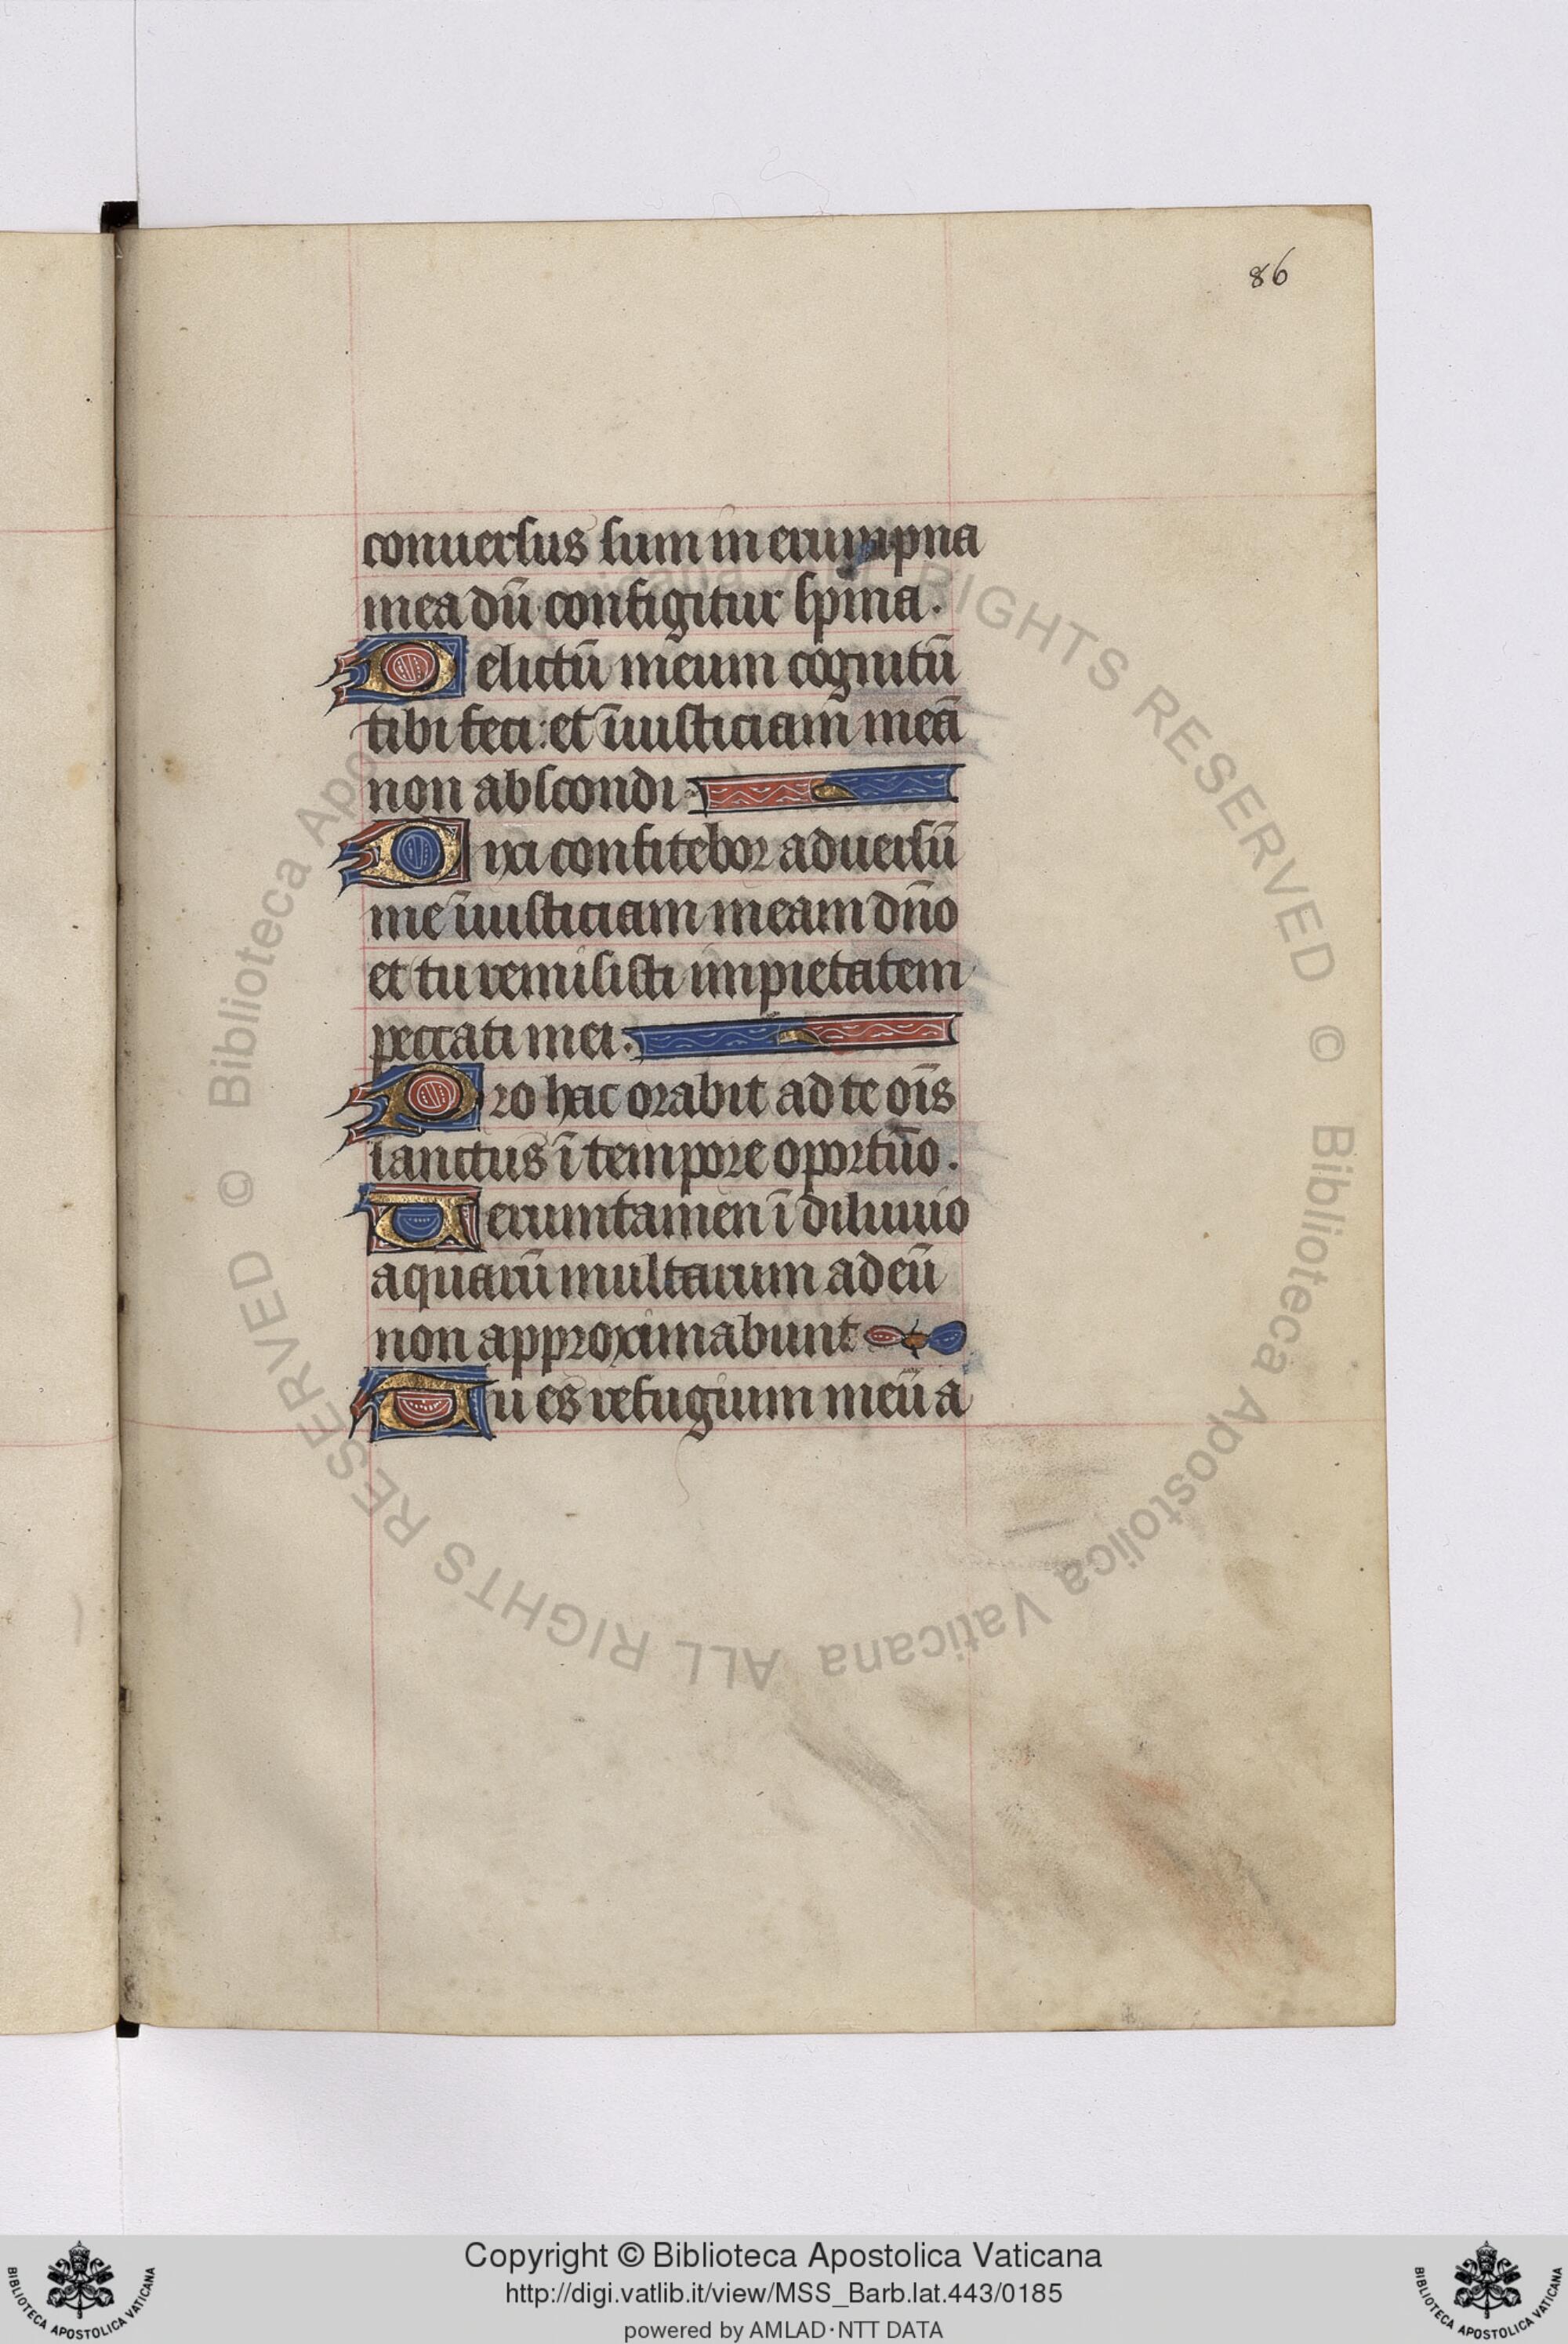 86
conuersus sum in erumpna
mea dū configitur spina.
Delictū meum cognitū
tibi feci: et īiusticiam meā
non abscondi.
Dixi confitebor aduersū
me īiusticiam meam dn̄o
et tu remisisti impietatem
peccati mei.
Pro hac orabit ad te oīs
sanctus ī tempore oportūo.
Ueruntamen ī diluuio
aquarū multarum ad eū
non approximabunt
Tu es refugium meū a
© Biblioteca Apostolica Vaticana ALL RIGHTS RESERVED © Biblioteca Apostolica Vaticana ALL RIGHTS RESERVED
Copyright © Biblioteca Apostolica Vaticana
http://digi.vatlib.it/view/MSS_Barb.lat.443/0185
powered by AMLAD·NTT DATA
BIBLIOTECA APOSTOLICA VATICANA
BIBLIOTECA APOSTOLICA VATICANA